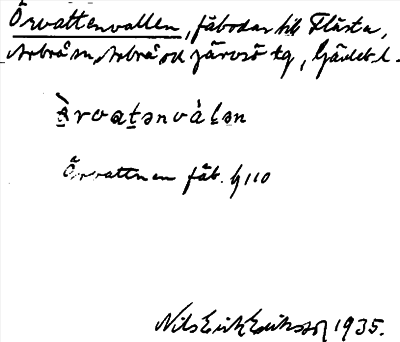 Örvattenvallen, fäbodar till Flästa,
Arbrå sn, Arbrå och Järvsö tg, Gävleb. l.
Örvattnen fäb. h 110
Nils Erik Eriksson 1935.